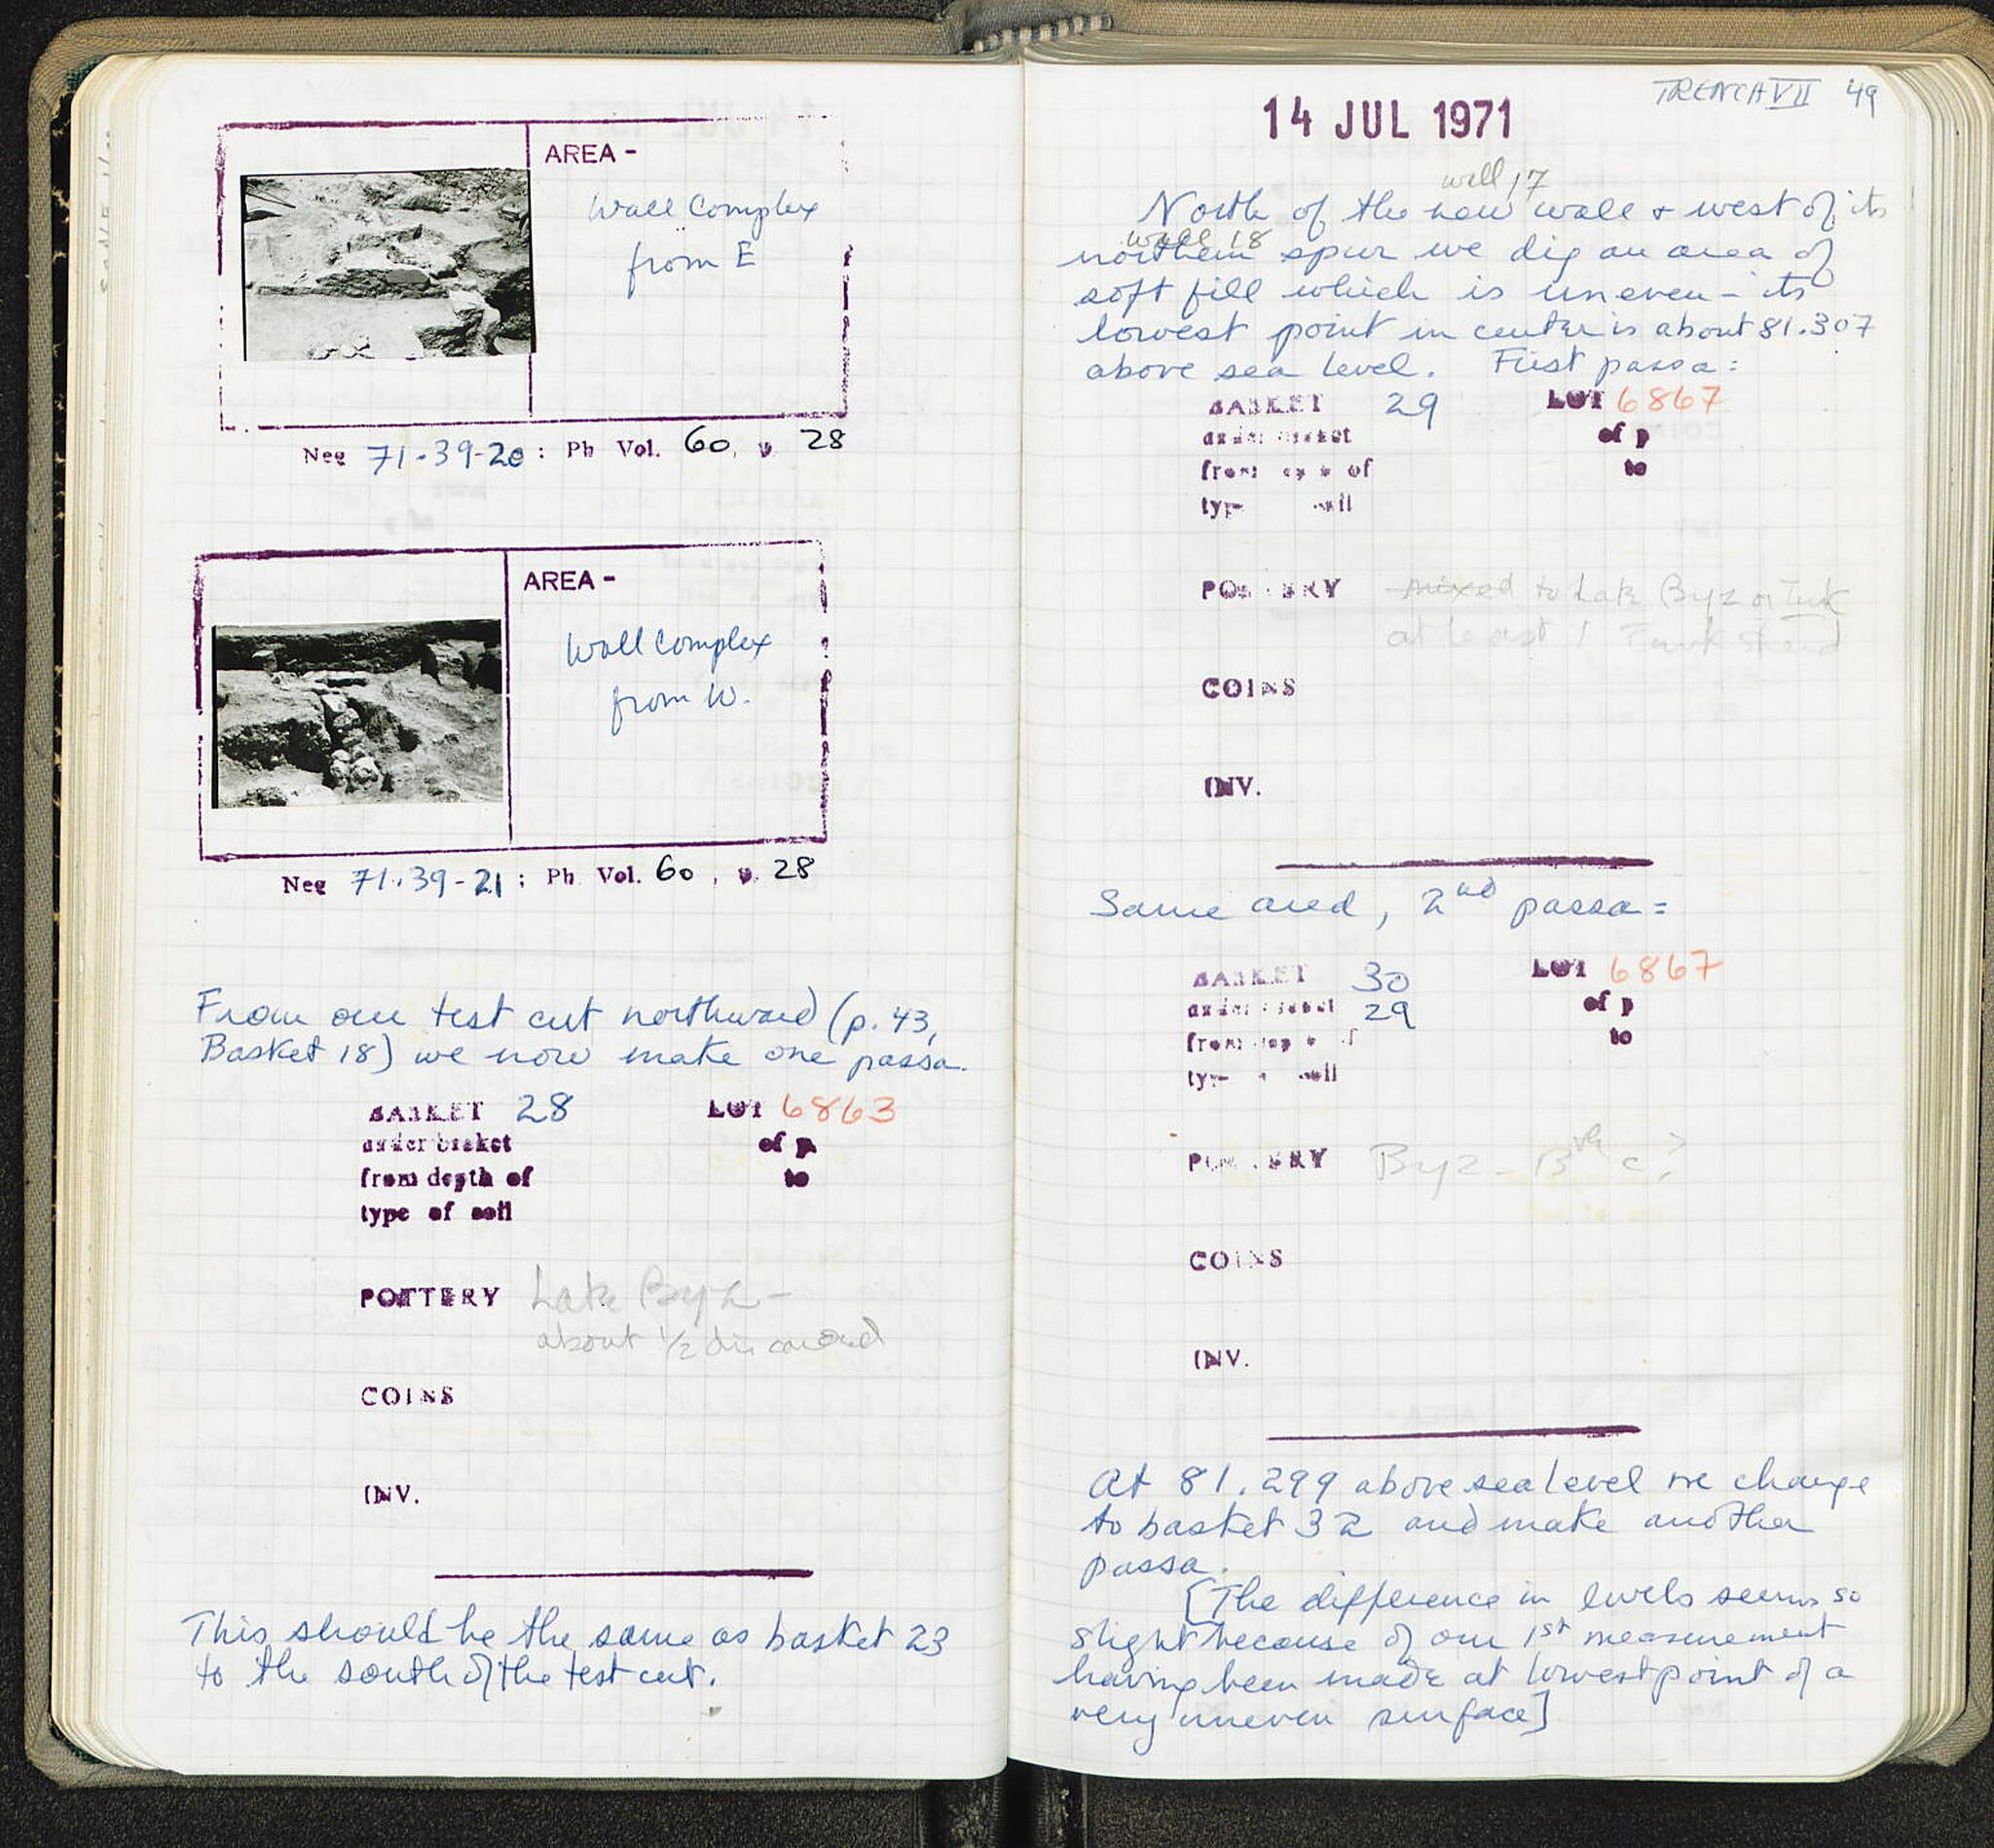 AREA -
Wall Complex
from E
Neg 71-39-20 : Ph Vol. 60, p 28
AREA -
Wall Complex
from W.
Neg 71.39-21 ; Ph Vol. 60, p. 28
From our test cut northward (p. 43,
Basket 18) we now make one passa.
BASKET 28 LOT 6863
under basket of p.
from depth of to
type of soil
POTTERY Late Byz -
about 1/2 discarded
COINS
INV.
This should be the same as basket 23
to the south of the test cut.
TRENCH VII 49
14 JUL 1971
wall 17
North of the new wall + west of its
wall 18
northern spur we dig an area of
soft fill which is uneven - its
lowest point in center is about 81.307
above sea level. First passa:
BASKET 29 LOT 6867
under basket of p
from depth of to
type soil
POTTERY mixed to Late Byz or Turk
at least 1 Turk sherd
COINS
INV.
Same area, 2nd passa=
BASKET 30 LOT 6867
under basket 29 of p
from depth of to
type of soil
POTTERY Byz - 13th c ?
COINS
INV.
At 81.299 above sea level we change
to basket 32 and make another
passa.
[The difference in levels seems so
slight because of our 1st measurement
having been made at lowest point of a
very uneven surface]